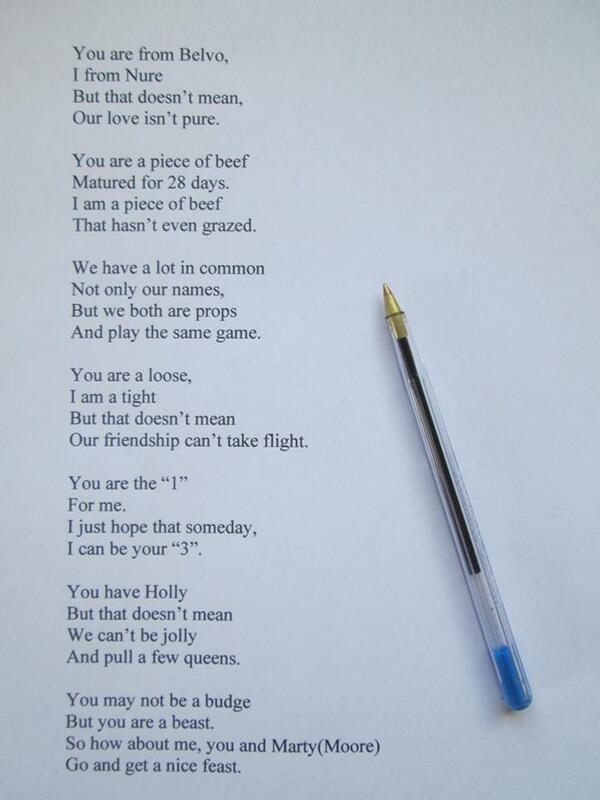 You are from Belvo,
I from Nure
But that doesn't mean,
Our love isn't pure.
You are a piece of beef
Matured for 28 days.
I am a piece of beef
That hasn't even grazed.
We have a lot in common
Not only our names,
But we both are props
And play the same game.
You are a loose,
I am a tight
But that doesn't mean
Our friendship can't take flight.
You are the “1”
For me.
I just hope that someday,
I can be your “3”.
You have Holly
But that doesn't mean
We can't be jolly
And pull a few queens.
You may not be a budge
But you are a beast.
So how about me, you and Marty(Moore)
Go and get a nice feast.